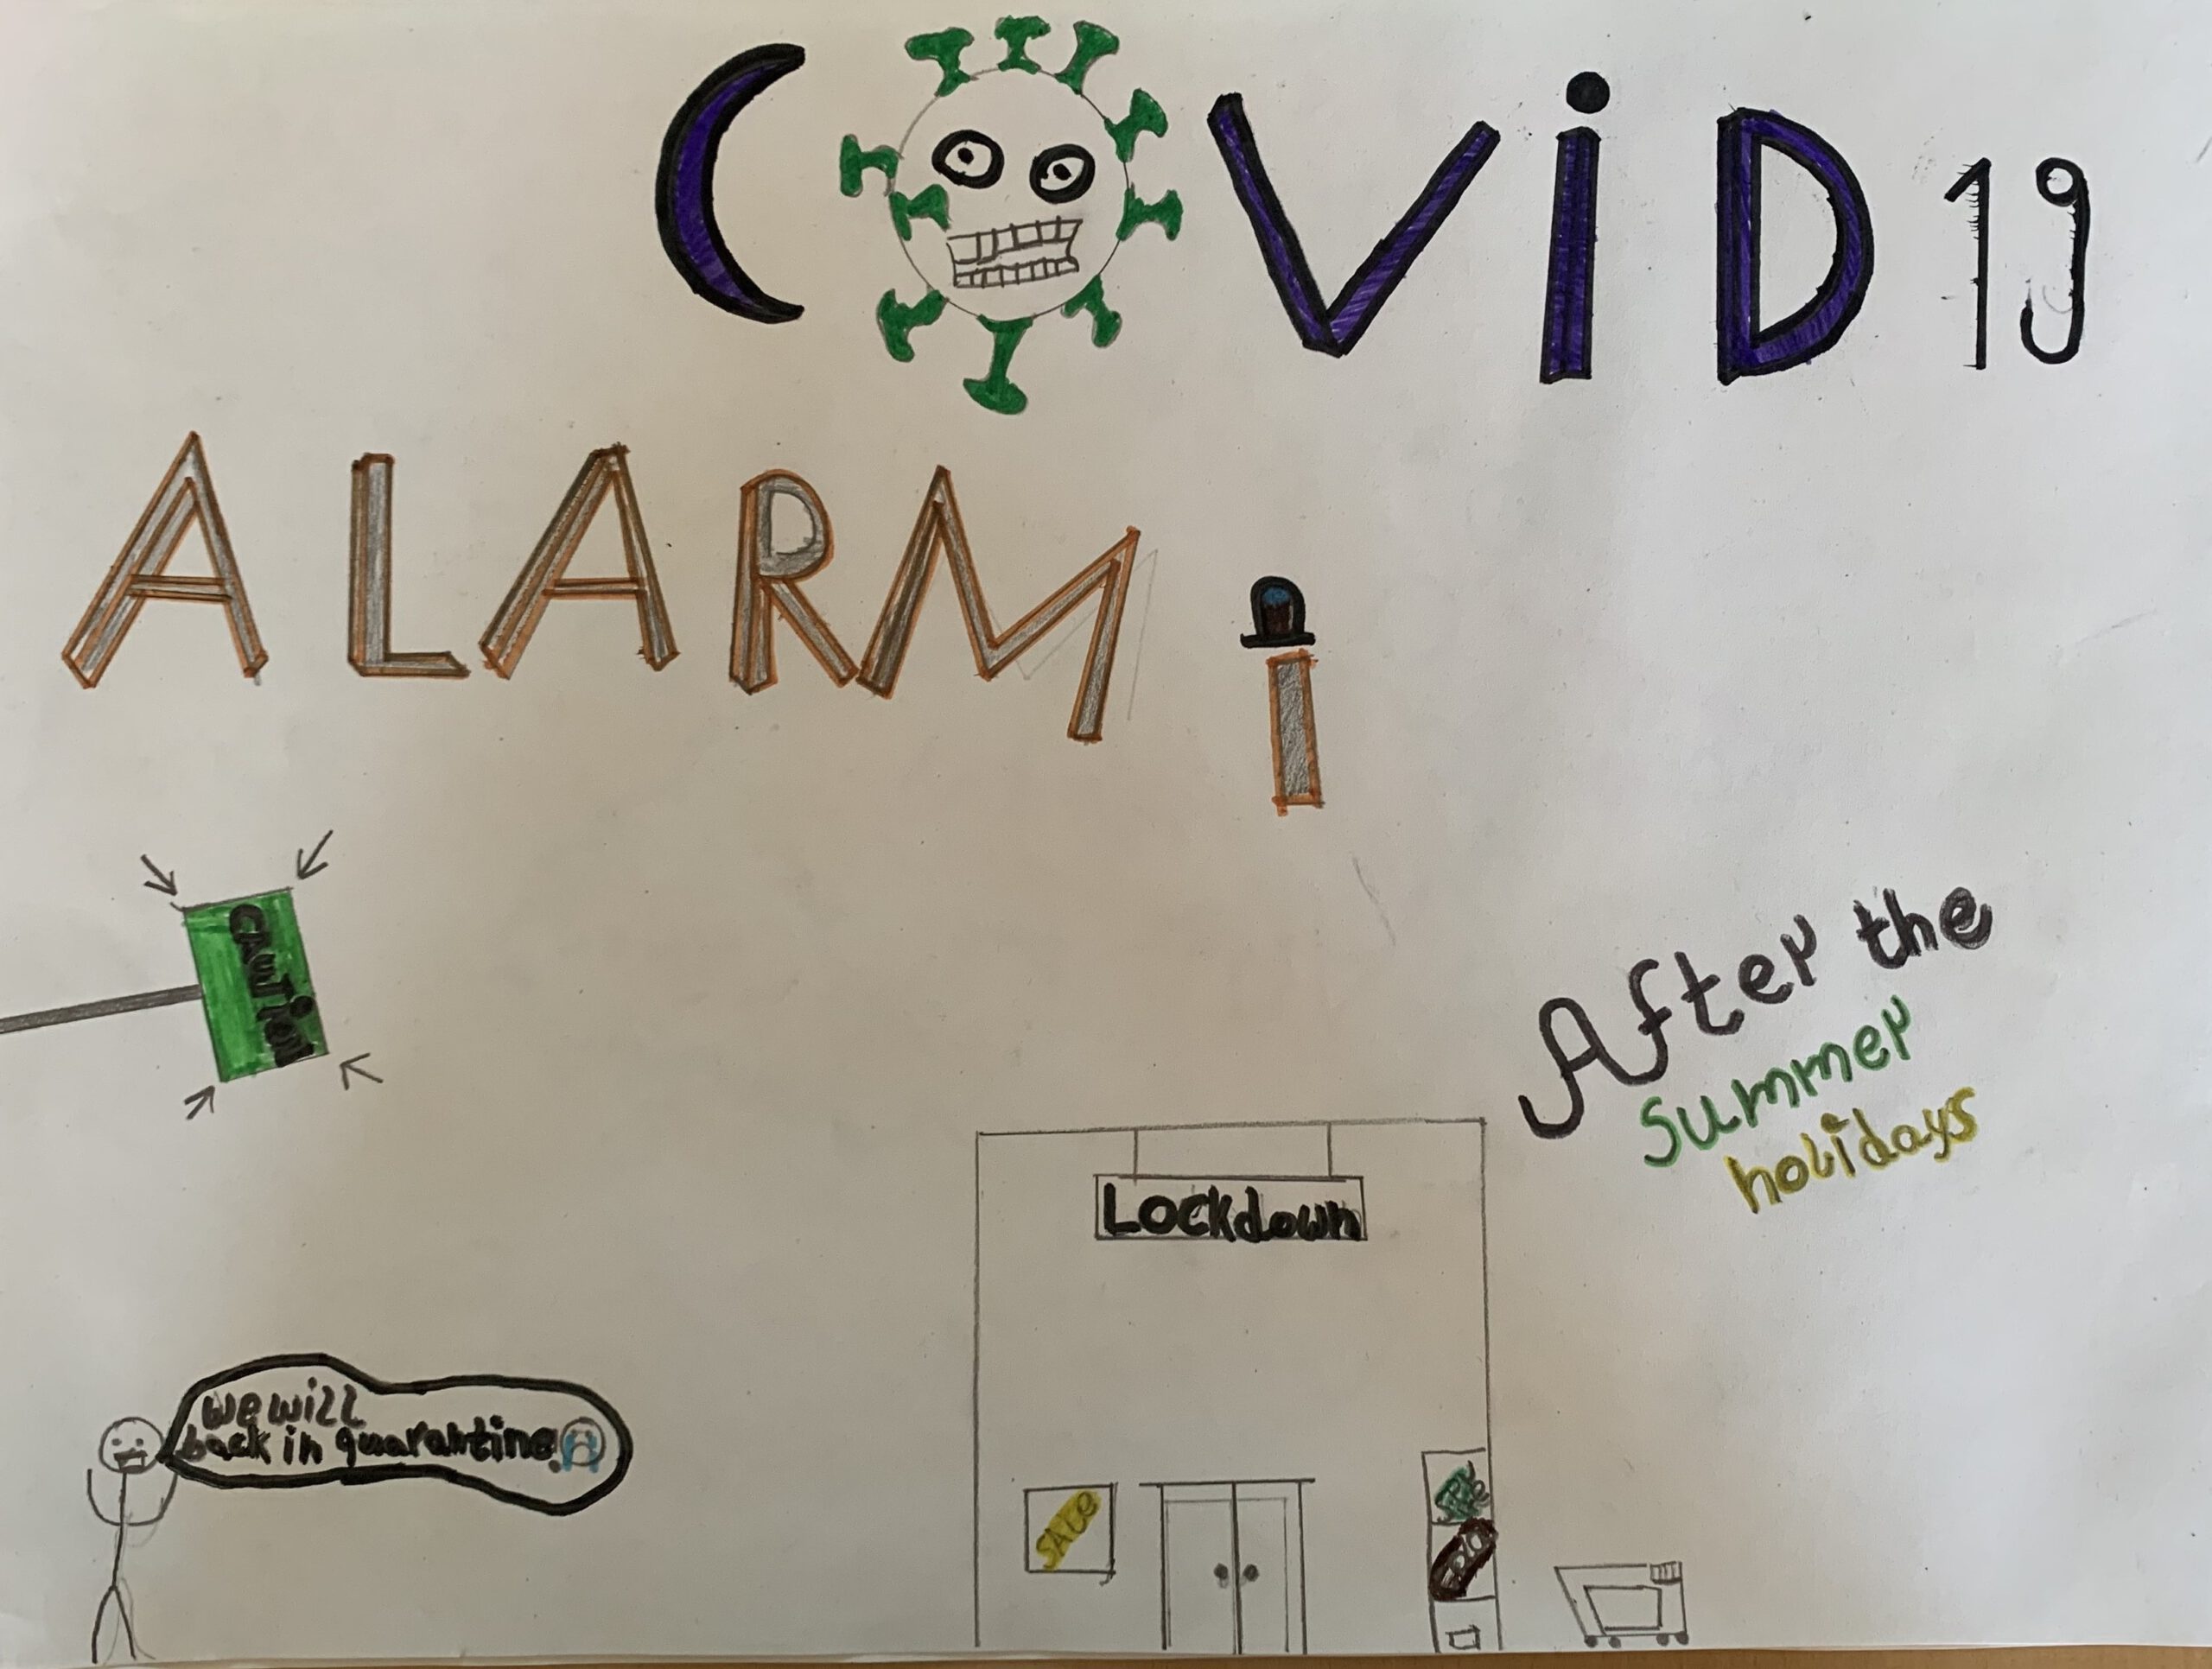 COViD 19
ALARM i
CAUTiON
After the
summer
holidays
Lockdown
we will
back in quarantine!
SALE